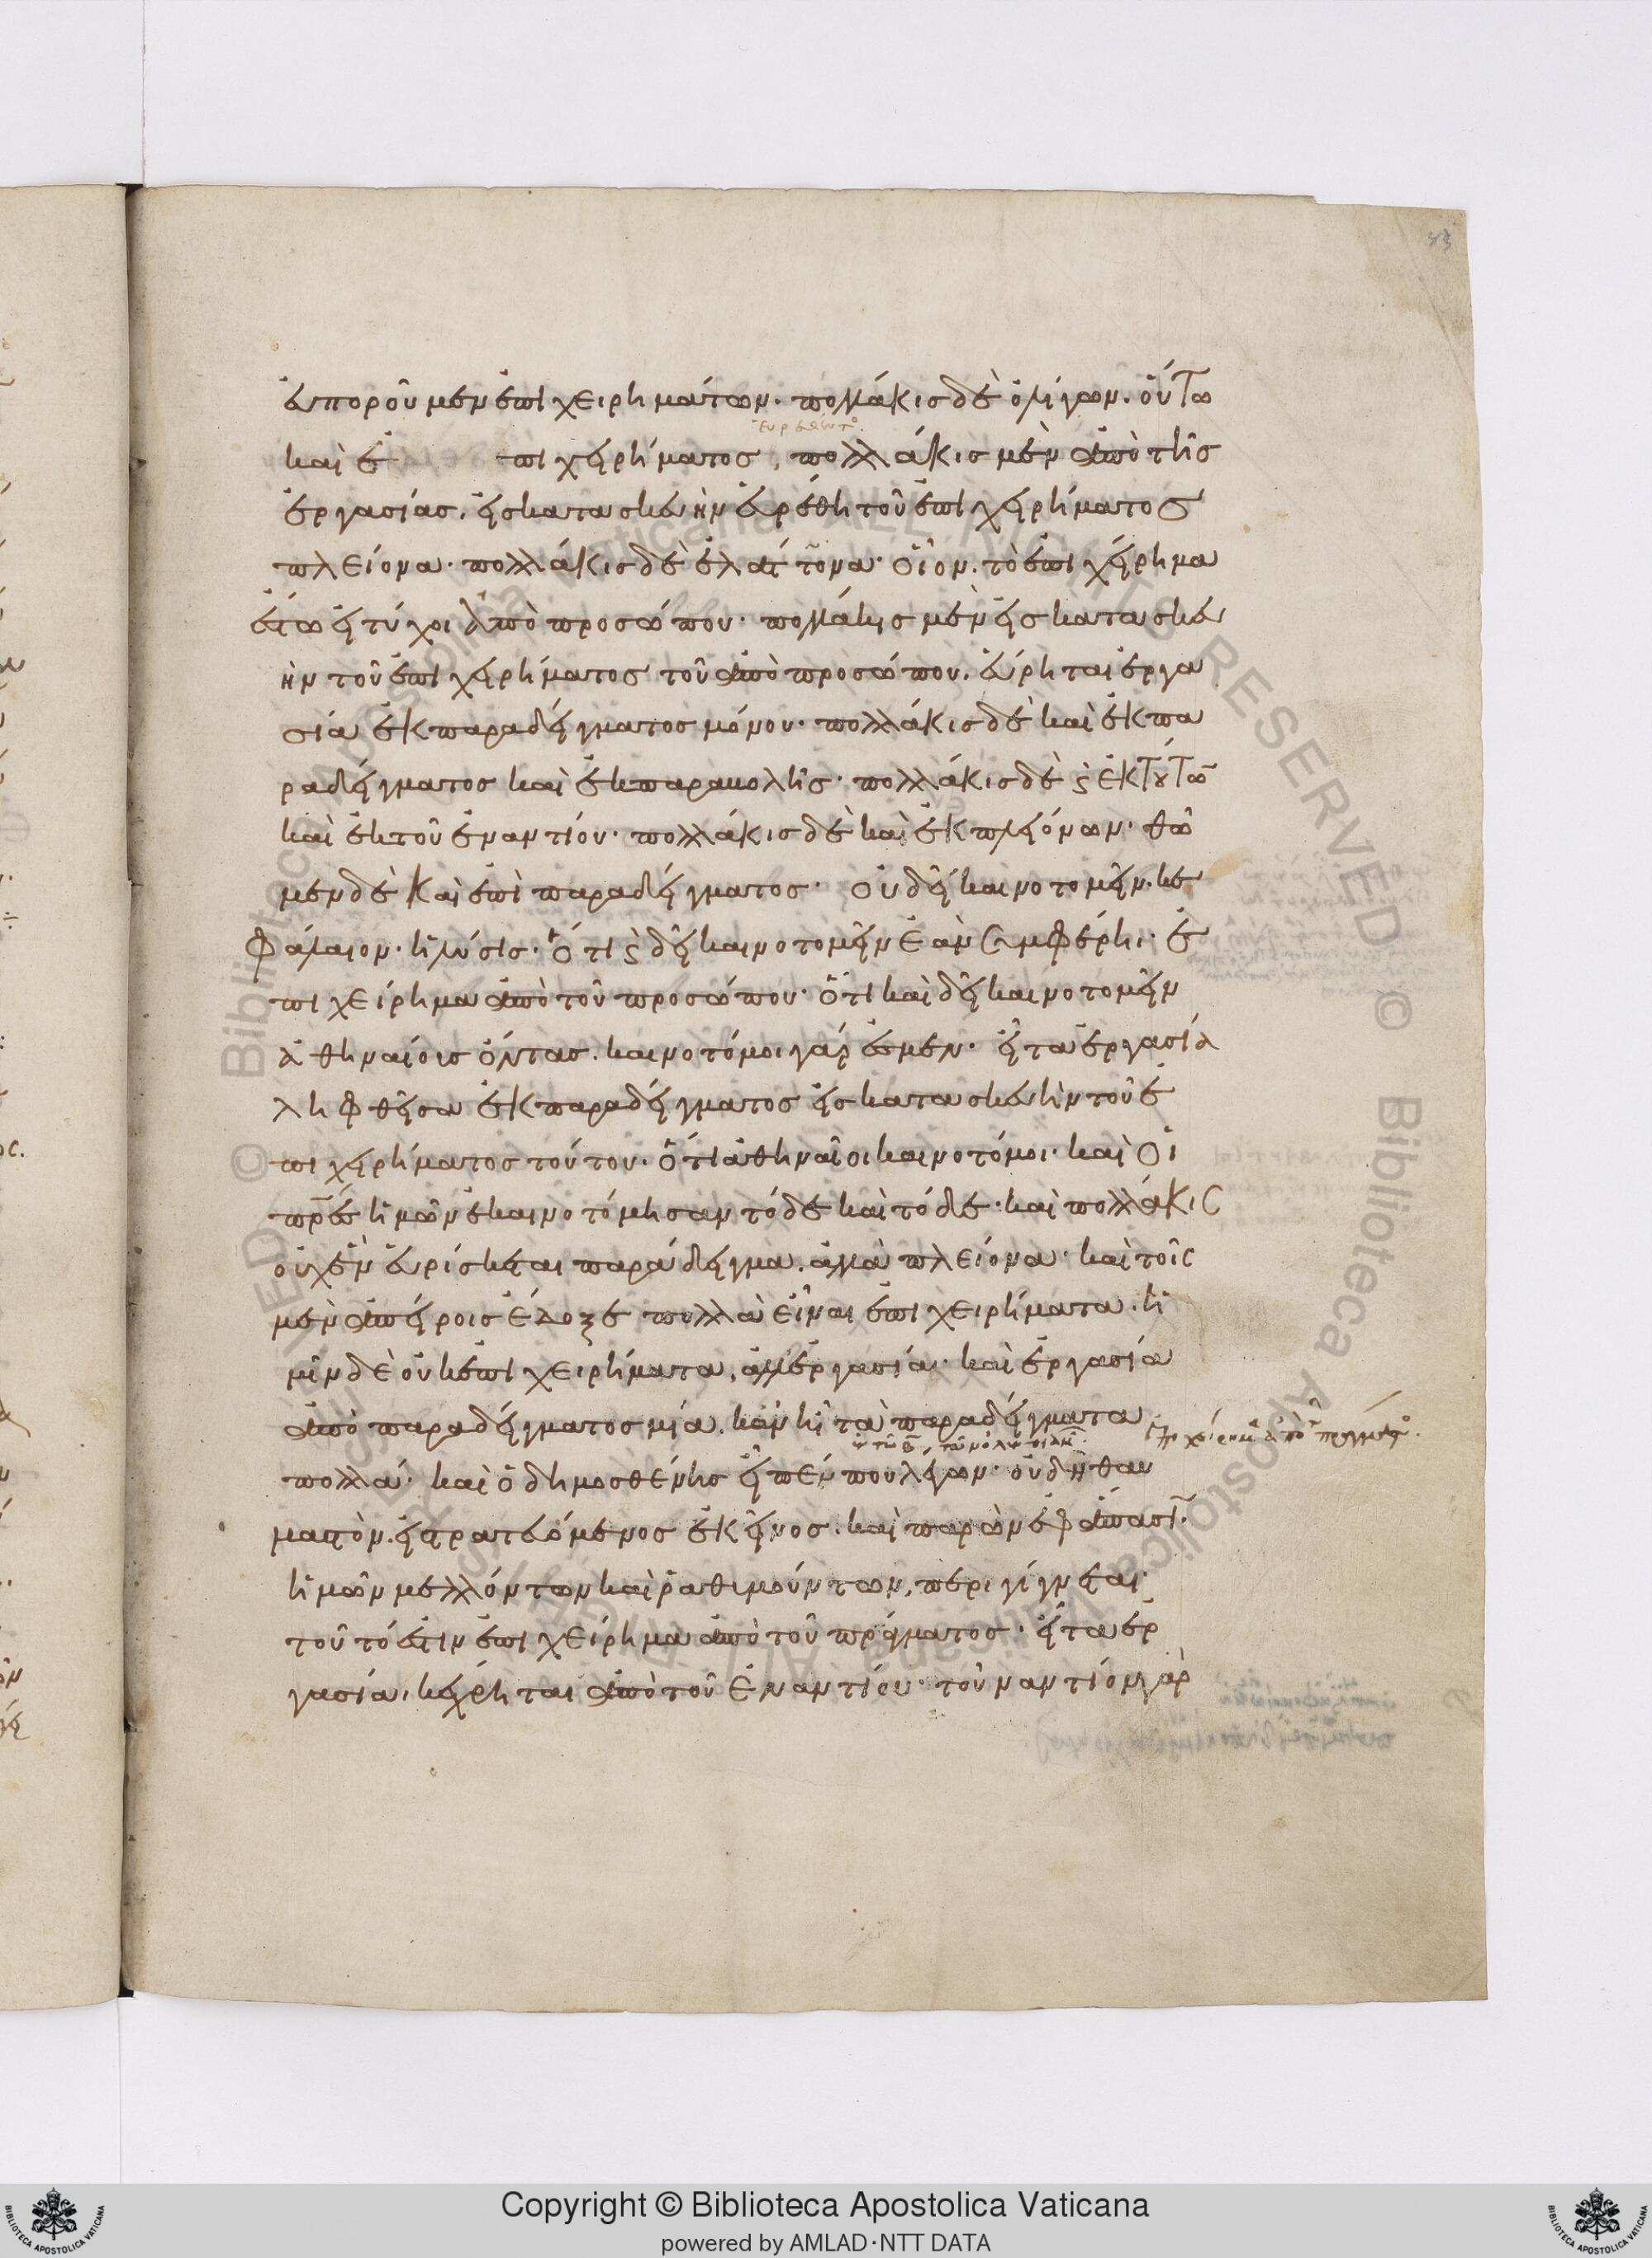 43
εὐποροῦμεν ἐπιχειρημάτων· πολλάκις δὲ ὀλίγων· οὕτω
καὶ ἐπιχειρήματος, πολλάκις μὲν ἀπὸ τῆς
ἐργασίας, εἰς κατασκευὴν εὑρέθη τοῦ ἐπιχειρήματος
πλείονα· πολλάκις δὲ ἐλάττονα· οἷον· τὸ ἐπιχείρημα
ἔστω εἰ τύχοι ἀπὸ προσώπου· πολλάκις μὲν εἰς κατασκευ
ὴν τοῦ ἐπιχειρήματος τοῦ ἀπὸ προσώπου, εὕρηται ἐργα
σία ἐκ παραδείγματος μόνου· πολλάκις δὲ καὶ ἐκ πα
ραδείγματος καὶ ἐκ παραβολῆς· πολλάκις δὲ ϗ ἐκ τούτων
καὶ ἐκ τοῦ ἐναντίου· πολλάκις δὲ καὶ ἐκ πλειόνων· θῶ
μεν δὲ καὶ ἐπὶ παραδείγματος· οὐ δεῖ καινοτομεῖν· κε
φάλαιον· ἡ λύσις· ὅτι ϗ δεῖ καινοτομεῖν ἐὰν συμφέρηι· ἐ
πιχείρημα ἀπὸ τοῦ προσώπου· ὅτι καὶ δεῖ καινοτομεῖν
ἀθηναίοις ὄντας· καινοτόμοι γάρ ἐσμεν· εἶτα ἐργασία
ληφθεῖσα ἐκ παραδείγματος εἰς κατασκευὴν τοῦ ἐ
πιχειρήματος τούτου· ὅτι ἀθηναῖοι καινοτόμοι· καὶ οἱ
πρὲς ἡμῶν ἐκαινοτόμησαν τόδε καὶ τόδε· καὶ πολλάκις
οὐχ ἓν εὑρίσκεται παράδειγμα, ἀλλὰ πλείονα· καὶ τοῖς
μὲν ἀπείροις ἔδοξε πολλὰ εἶναι ἐπιχειρήματα· ἡ
μῖν δὲ οὐκ ἐπιχειρήματα, ἀλλ' ἐργασίαι· καὶ ἐργασία
ἀπὸ παραδείγματος μία, κἂν ἦι τὰ παραδείγματα
πολλά· καὶ ὁ δημοσθένης εἶπέν που λέγων· οὐ δὴ θαυ
μαστὸν· εἰ στρατευόμενος ἐκεῖνος· καὶ παρὼν ἐφ' ἅπασι
ἡμῶν μελλόντων καὶ ῥαθυμούντων, περιγίγνεται·
τοῦτό ἐστιν ἐπιχείρημα ἀπὸ τοῦ πράγματος· εἶτα ἐρ
γασία, κέχρηται ἀπὸ τοῦ ἐναντίου· τοὐναντίον γὰρ
Copyright © Biblioteca Apostolica Vaticana
powered by AMLAD·NTT DATA